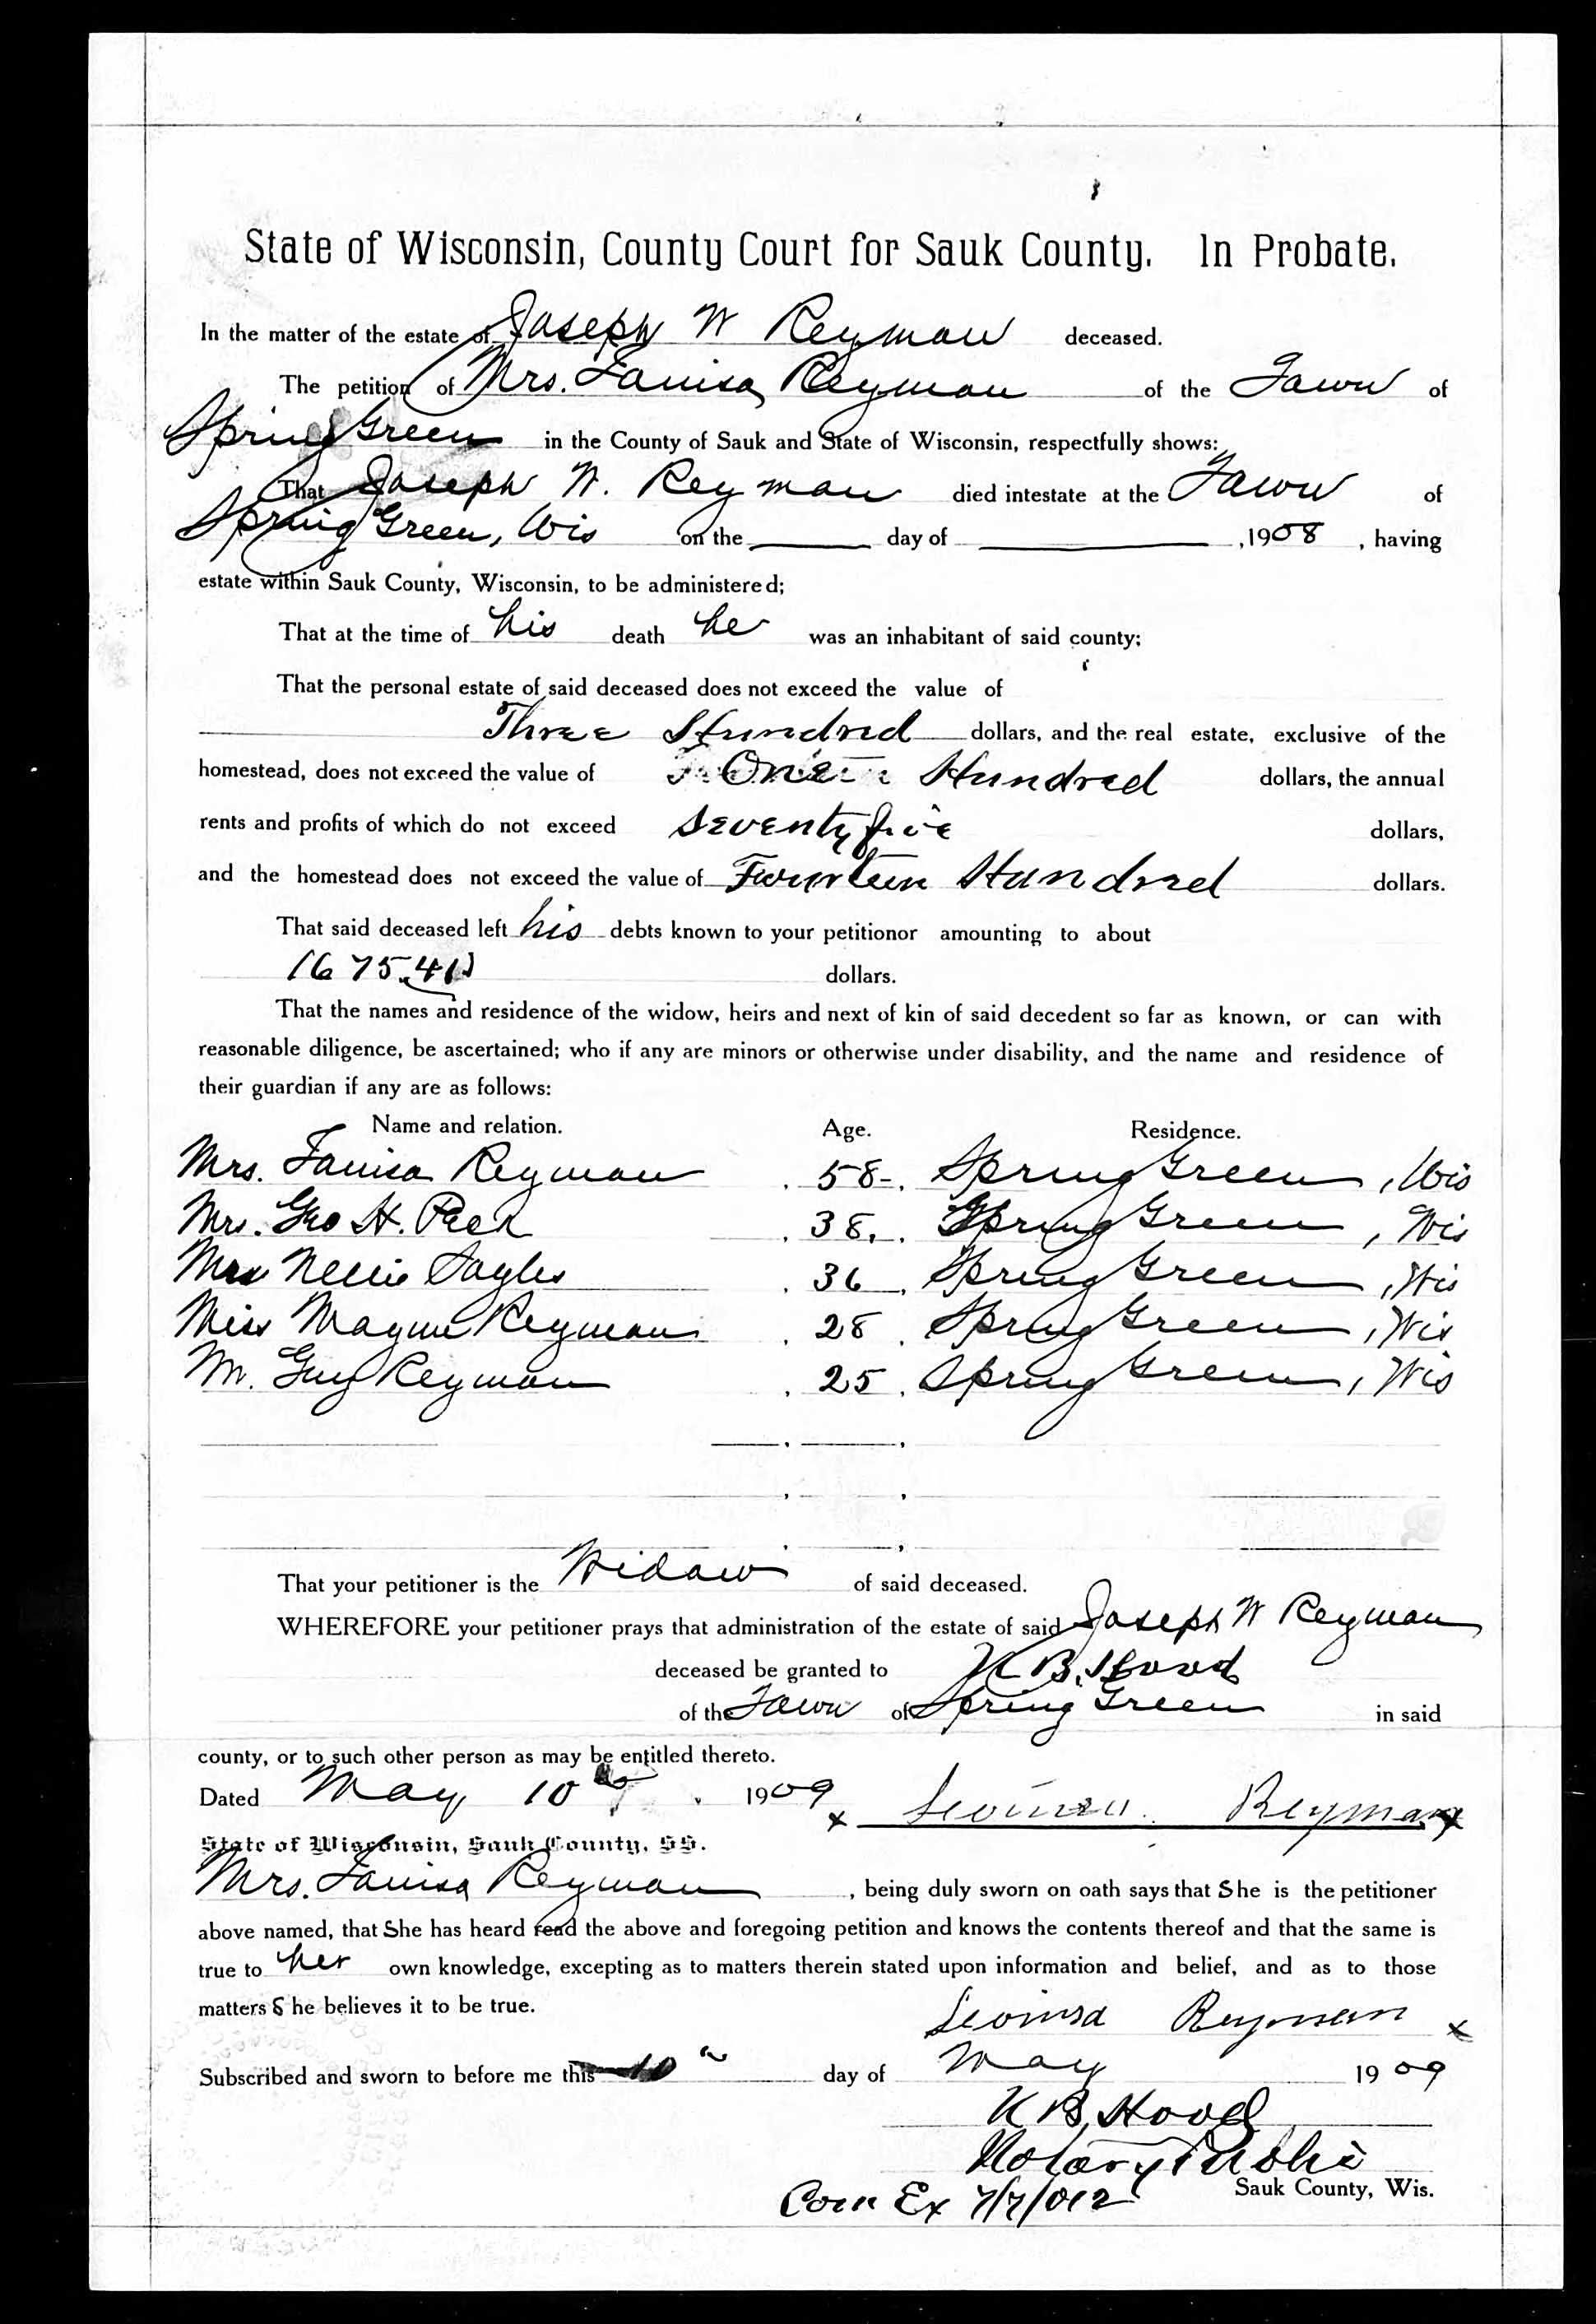 State of Wisconsin, County Court for Sauk County. In Probate.
In the matter of the estate of Joseph W Reyman deceased.
The petition of Mrs. Louisa Reyman of the Town of
Spring Green in the County of Sauk and State of Wisconsin, respectfully shows:
That Joseph W. Reyman died intestate at the Town of
Spring Green, Wis on the day of , 1908 , having
estate within Sauk County, Wisconsin, to be administered;
That at the time of his death he was an inhabitant of said county;
That the personal estate of said deceased does not exceed the value of
Three Hundred dollars, and the real estate, exclusive of the
homestead, does not exceed the value of One Hundred dollars, the annual
rents and profits of which do not exceed Seventy five dollars,
and the homestead does not exceed the value of Fourteen Hundred dollars.
That said deceased left his debts known to your petitionor amounting to about
1675.41 dollars.
That the names and residence of the widow, heirs and next of kin of said decedent so far as known, or can with
reasonable diligence, be ascertained; who if any are minors or otherwise under disability, and the name and residence of
their guardian if any are as follows:
Name and relation. Age. Residence.
Mrs. Louisa Reyman . 58 . Spring Green, Wis
Mrs. Geo H. Peck . 38 . Spring Green, Wis
Mrs Nellie Sayles . 36 . Spring Green, Wis
Miss Mayme Reyman . 28 . Spring Green, Wis
M. Guy Reyman . 25 . Spring Green, Wis
That your petitioner is the Widow of said deceased.
WHEREFORE your petitioner prays that administration of the estate of said Joseph W Reyman
deceased be granted to K B. Hood
of the Town of Spring Green in said
county, or to such other person as may be entitled thereto.
Dated May 10 , 1909 x Reyman x
State of Wisconsin, Sauk County, SS.
Mrs. Louisa Reyman , being duly sworn on oath says that She is the petitioner
above named, that She has heard read the above and foregoing petition and knows the contents thereof and that the same is
true to her own knowledge, excepting as to matters therein stated upon information and belief, and as to those
matters S he believes it to be true.
Reyman x
Subscribed and sworn to before me this 10 day of May 1909
K B. Hood
Notary Public
Sauk County, Wis.
Com Ex 7/7/012